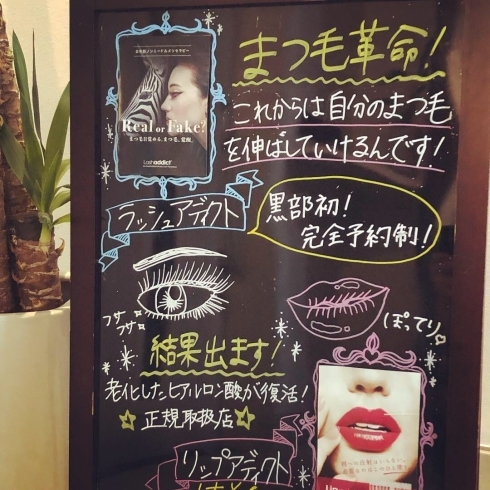 まつ毛革命!
これからは自分のまつ毛
を伸ばしていけるんです!
Real or Fake?
まつ毛目覚める、まつ毛、覚醒。
Lashaddict
ラッシュアディクト
黒部初!
完全予約制!
フサ
フサ
ぽってり
結果出ます!
老化したヒアルロン酸が復活!
☆正規取扱店☆
リップアディクト